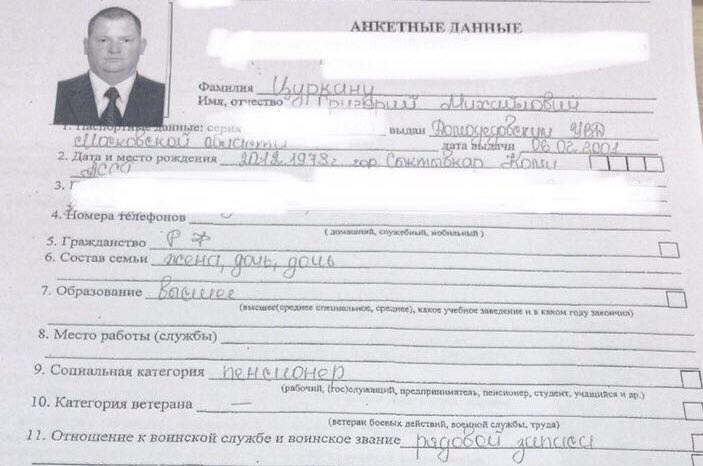 АНКЕТНЫЕ ДАННЫЕ
Фамилия Цуркану
Имя, отчество Григорий Михайлович
1. Паспортные данные: серия выдан Домодедовским УВД
Московской области дата выдачи 06.02.2001
2. Дата и место рождения 20.12.1978г гор Сыктывкар Коми
АССР
3.
4. Номера телефонов
( домашний, служебный, мобильный )
5. Гражданство РФ
6. Состав семьи жена, дочь, дочь
7. Образование высшее
(высшее(среднее специальное, среднее), какое учебное заведение и в каком году закончил)
8. Место работы (службы)
9. Социальная категория пенсионер
(рабочий, (гос)служащий, предприниматель, пенсионер, студент, учащийся и др.)
10. Категория ветерана —
(ветеран боевых действий, военной службы, труда)
11. Отношение к воинской службе и воинское звание рядовой запаса